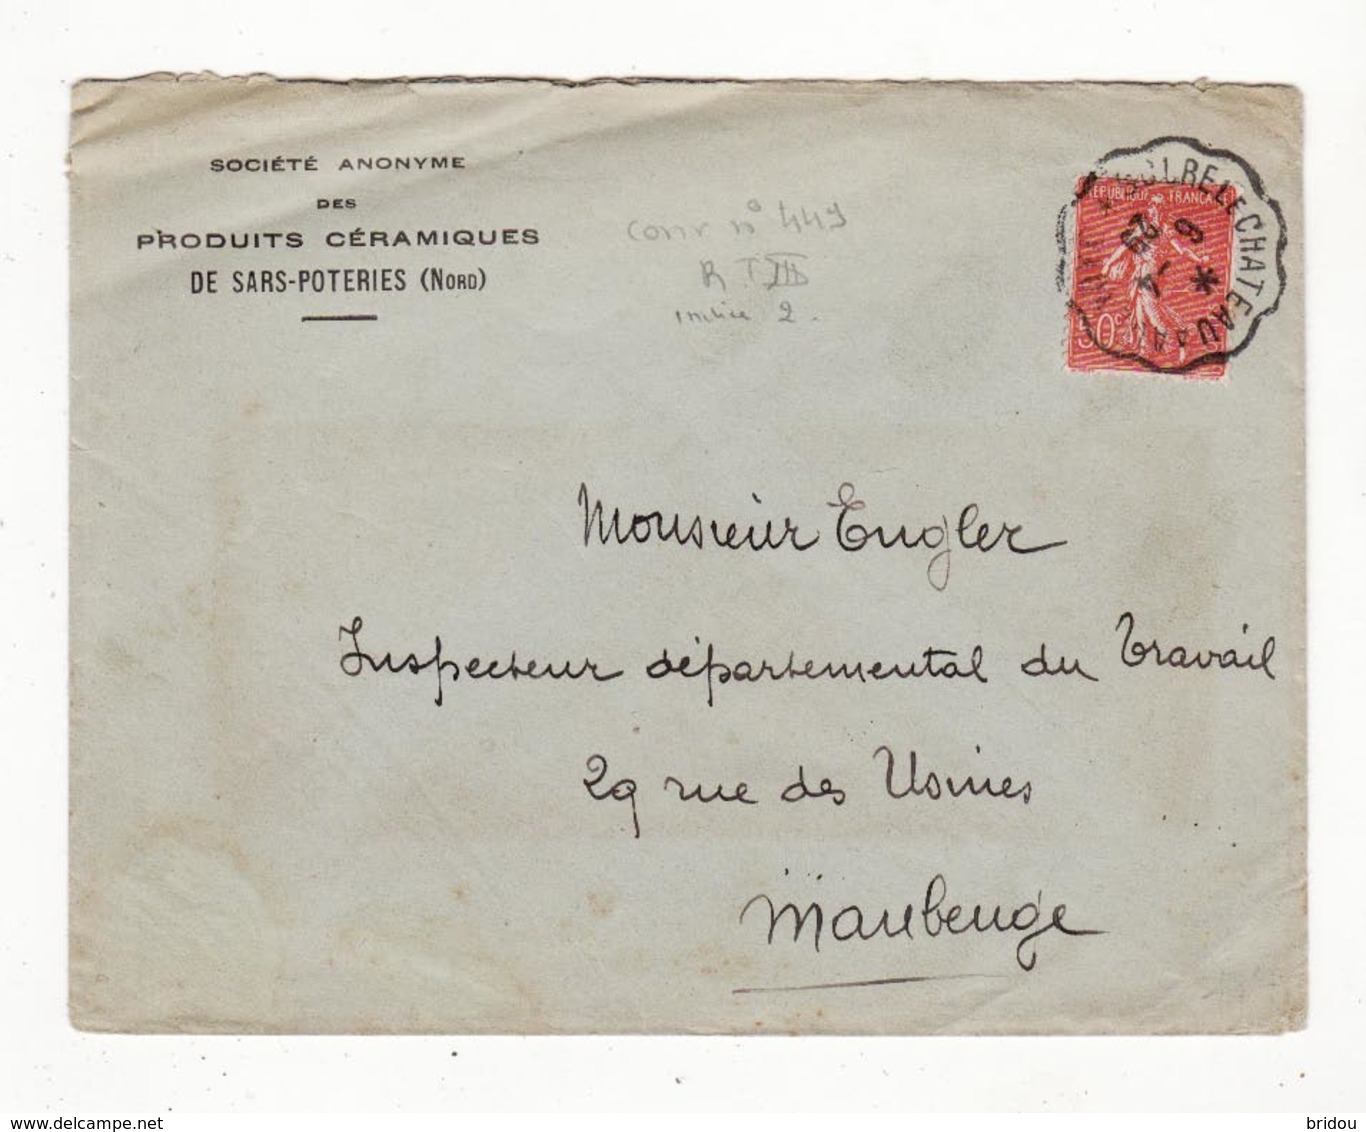 SOCIÉTÉ ANONYME
DES
PRODUITS CÉRAMIQUES
DE SARS-POTERIES (NORD)
Conv n° 449
R T III
indice 2.
RÉPUBLIQUE FRANÇAISE
50c
LECHATEAU
6
*
29
Monsieur Engler
Inspecteur départemental du Travail
29 rue des Usines
Maubeuge
www.delcampe.net
bridou